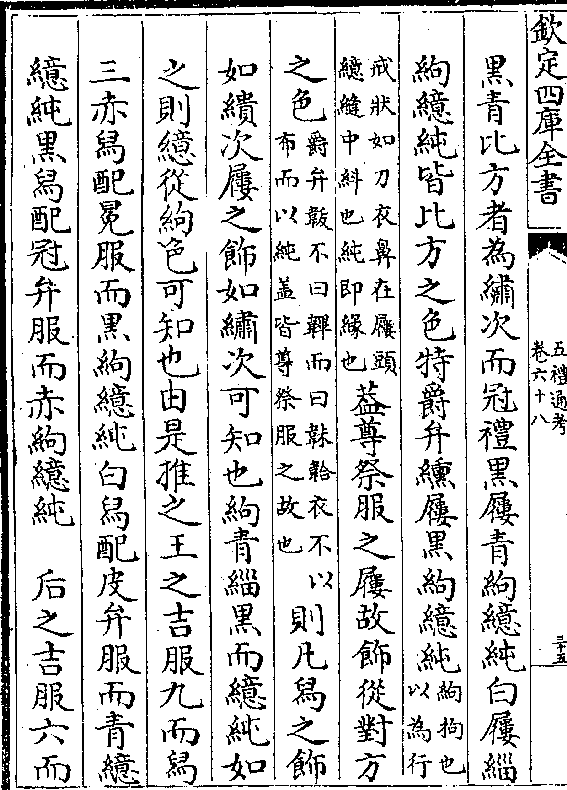 欽定四庫全書
五禮通考
卷六十八
三十五
黑青比方者為繡次而冠禮黑屨青絇繶純白屨緇
絇繶純皆比方之色特爵弁纁屨黑絇繶純絇拘也以為行
戒狀如刀衣鼻在屨頭繶縫中紃也純即緣也葢尊祭服之屨故飾從對方
之色爵弁韍不曰韠而曰韎韐衣不以布而以純盖皆尊祭服之故也則凡舄之飾
如繢次屨之飾如繡次可知也絇青緇黑而繶純如
之則繶從絇色可知也由是推之王之吉服九而舄
三赤舄配冕服而黑絇繶純白舄配皮弁服而青繶
繶純黑舄配冠弁服而赤絇繶純 后之吉服六而